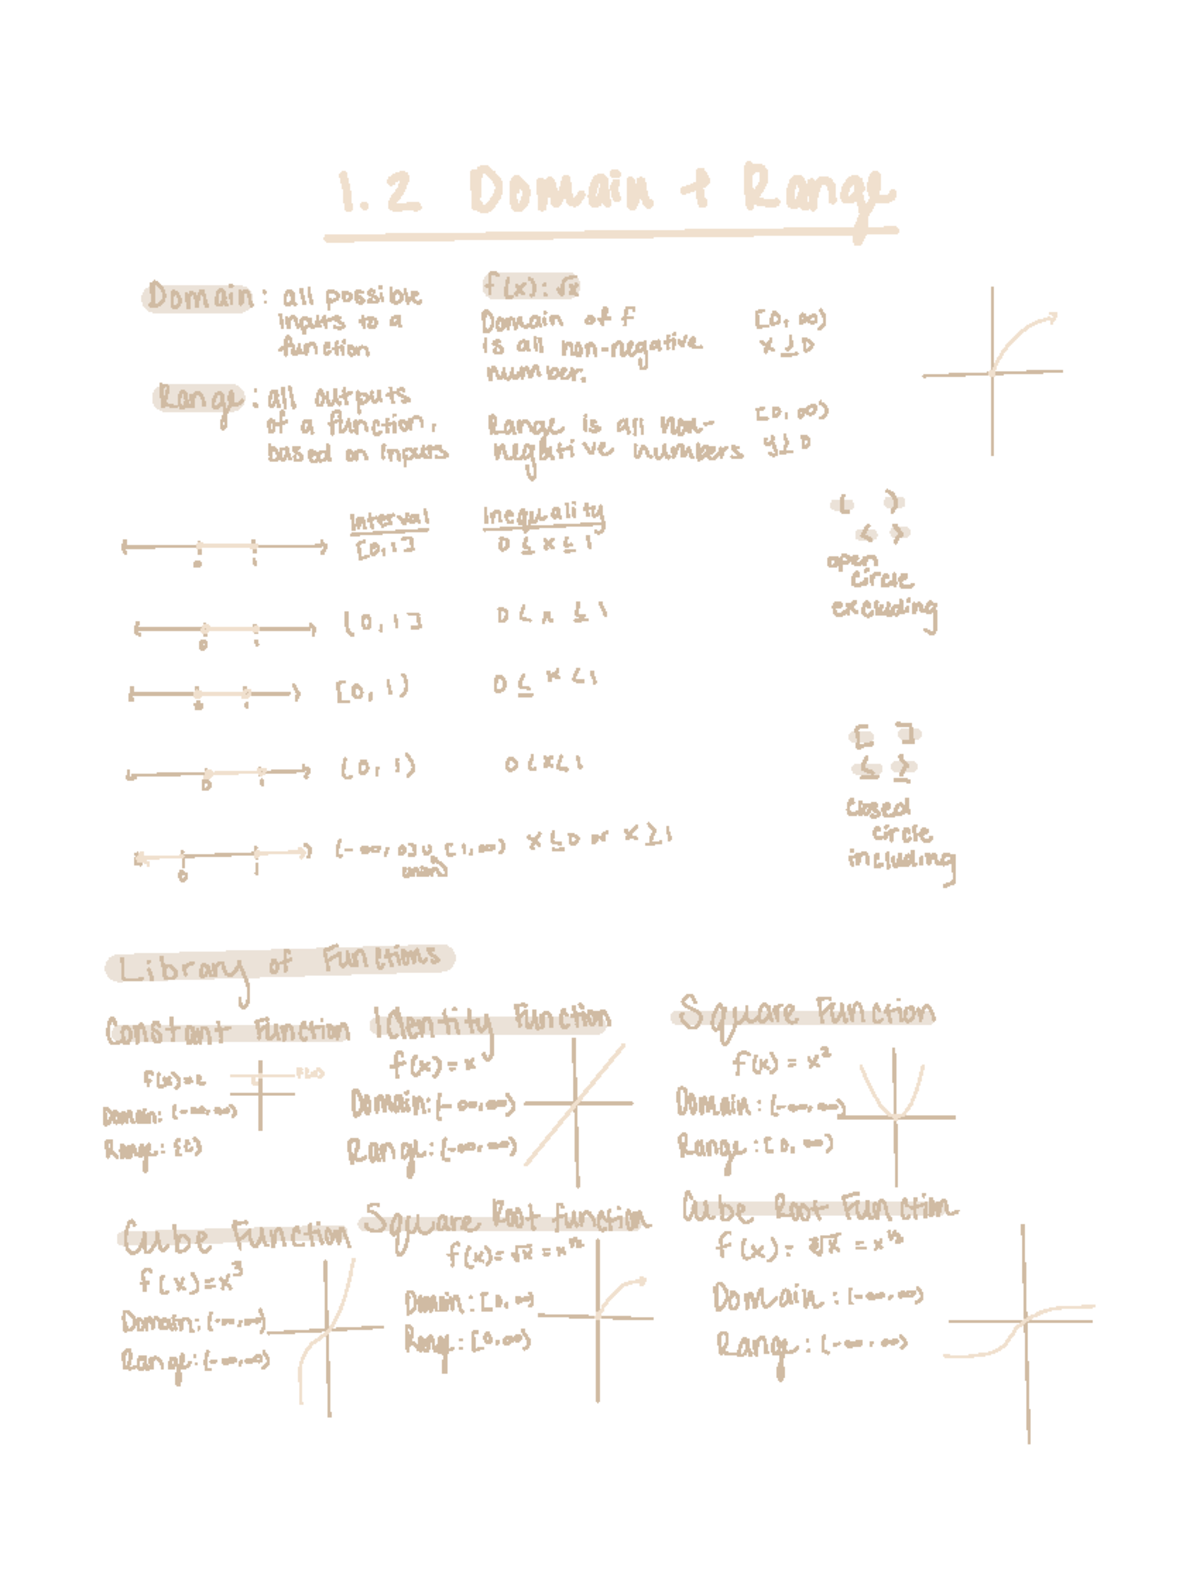 1.2 Domain + Range
Domain: all possible
inputs to a
function
Range: all outputs
of a function,
based on inputs
f(x): √x
Domain of f
is all non-negative
number.
[0, ∞)
x ≥ 0
Range is all non-
negative numbers
[0, ∞)
y ≥ 0
Interval
Inequality
0 1
[0,1]
0 ≤ x ≤ 1
0 1
(0,1]
0 < x ≤ 1
0 1
[0,1)
0 ≤ x < 1
0 1
(0,1)
0 < x < 1
0 1
(-∞, 0] ∪ [1, ∞)
union
x ≤ 0 or x ≥ 1
( )
< >
open
circle
excluding
[ ]
≤ ≥
closed
circle
including
Library of Functions
Constant Function
f(x)=c
Domain: (-∞,∞)
Range: {c}
Identity Function
f(x)=x
Domain: (-∞,∞)
Range: (-∞,∞)
Square Function
f(x) = x²
Domain: (-∞,∞)
Range: [0, ∞)
Cube Function
f(x)=x³
Domain: (-∞,∞)
Range: (-∞,∞)
Square Root function
f(x)= √x = x^1/2
Domain: [0, ∞)
Range: [0,∞)
Cube Root Function
f(x)= ∛x = x^1/3
Domain: (-∞,∞)
Range: (-∞,∞)